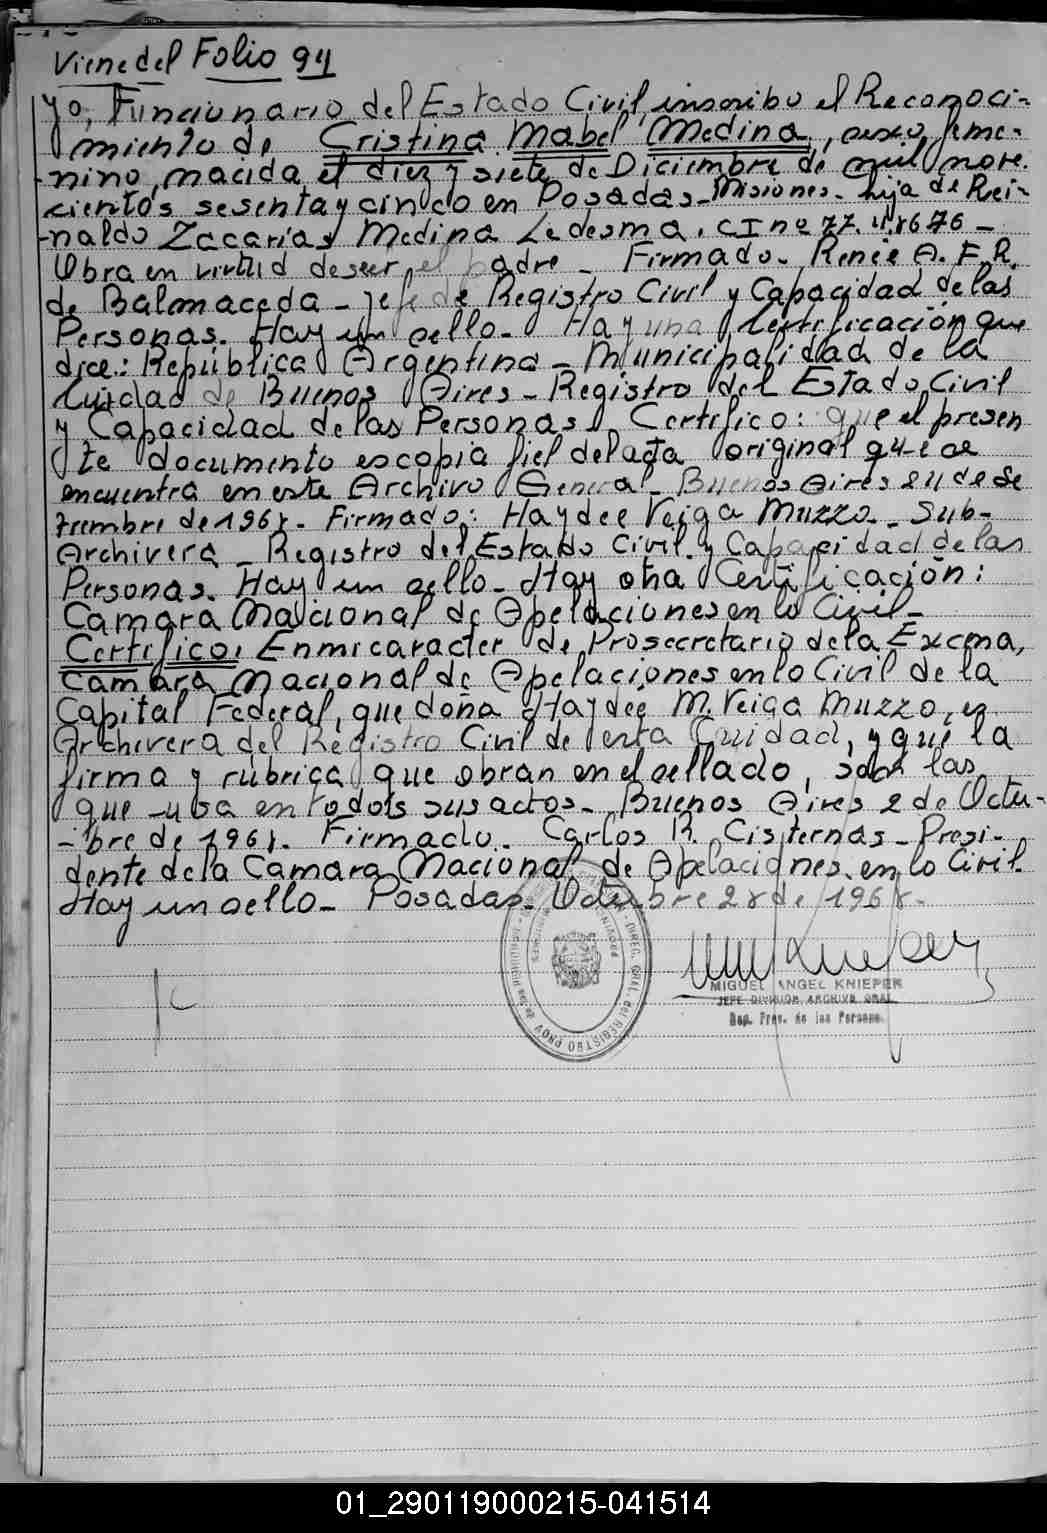 Viene del Folio 94
Yo, Funcionario del Estado Civil, inscribo el Reconoci-
miento de Cristina Mabel Medina, sexo feme-
nino, nacida el diez y siete de Diciembre de mil nove-
cientos sesenta y cinco en Posadas - Misiones - hija de Rei-
naldo Zacarías Medina Ledesma. C I nº 77.
Obra en virtud de ser el padre - Firmado - Renée A. F. R.
de Balmaceda - Jefe de Registro Civil y Capacidad de las
Personas. Hay un sello - Hay una Certificación que
dice: República Argentina - Municipalidad de la
Ciudad de Buenos Aires - Registro del Estado Civil
y Capacidad de las Personas, Certifico: que el presen
te documento es copia fiel del acta original que se
encuentra en este Archivo General - Buenos Aires 24 de Se
tiembre de 1968 - Firmado: Haydee Veiga Muzzo - Sub-
Archivera - Registro del Estado Civil y Capacidad de las
Personas. Hay un sello - Hay otra Certificación:
Camara Nacional de Apelaciones en lo Civil -
Certifico: En mi caracter de Prosecretario de la Excma,
Camara Nacional de Apelaciones en lo Civil de la
Capital Federal, que doña Haydeé M. Veiga Muzzo, es
Archivera del Registro Civil de esta Ciudad, y que la
firma y rúbrica que obran en el sellado, son las
que usa en todos sus actos - Buenos Aires 2 de Octu-
-bre de 1968 - Firmado - Carlos R. Cisternas - Presi-
dente de la Camara Nacional de Apelaciones en lo Civil -
Hay un sello - Posadas - Octubre 28 de 1968 -
MIGUEL ANGEL KNIEPER
JEFE DIVISION ARCHIVO GRAL.
Reg. Prov. de las Personas
01_290119000215-041514